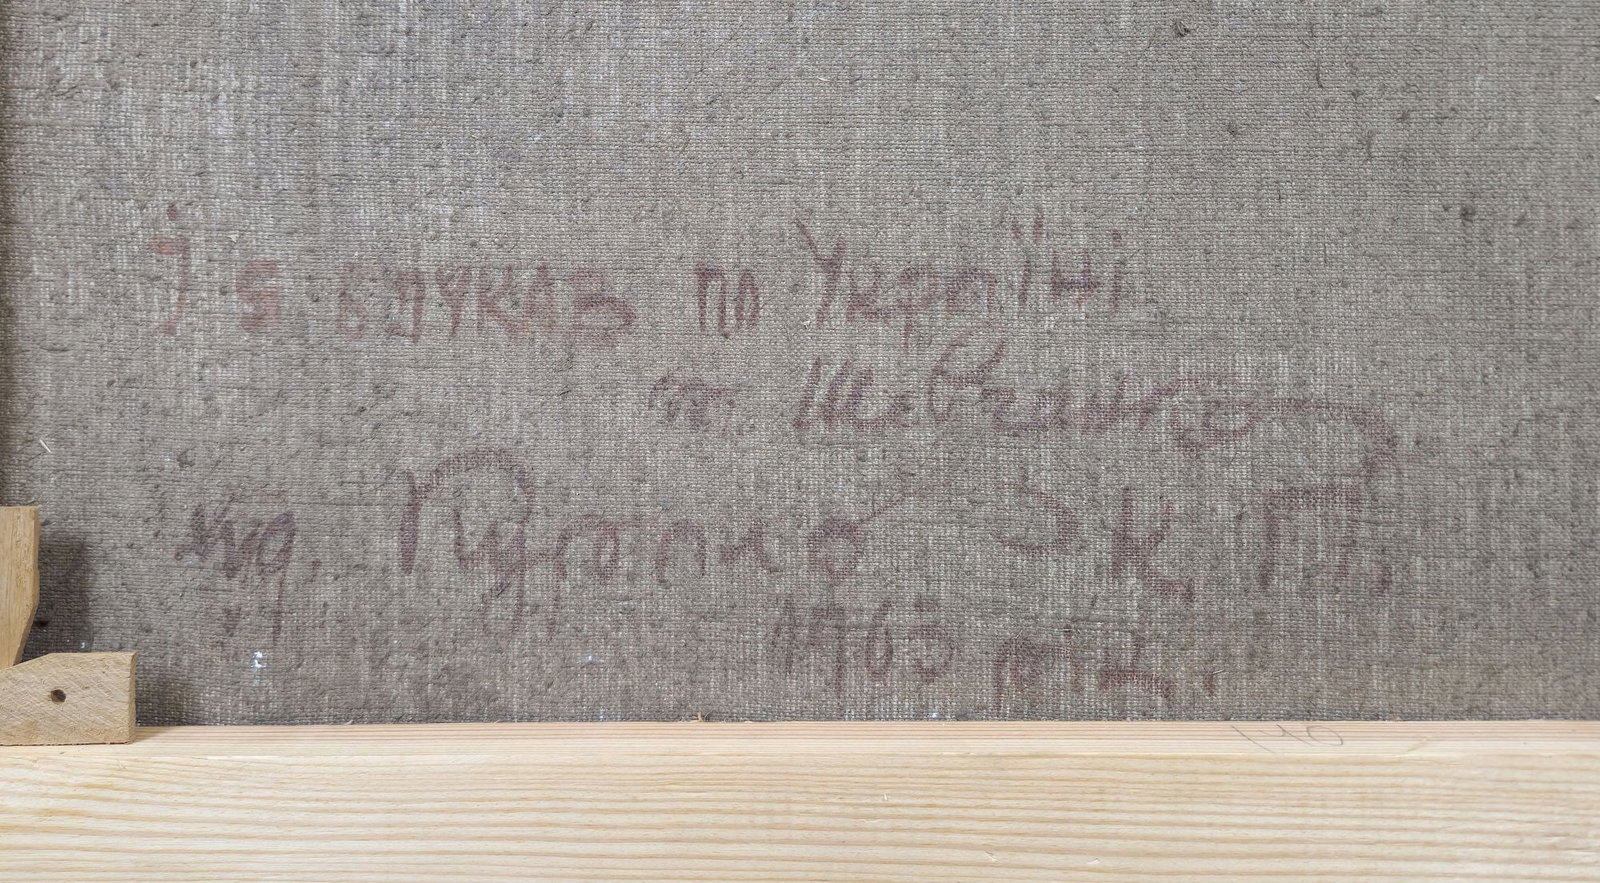 І я блукав по Україні
т. Шевченко
худ. Пуготко К. П.
1965 рік.
140